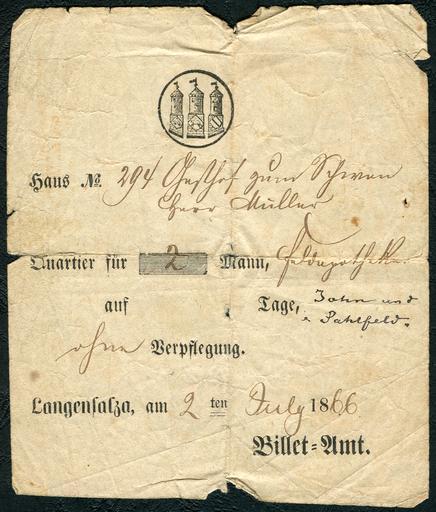 Haus No. 294 Gasthof zum Schwan
Herr Müller
Quartier für 2 Mann, Feldapotheker
auf Tage, John und
Pahlfeld.
ohne Verpflegung.
Langensalza, am 2 ten July 1866
Billet=Amt.